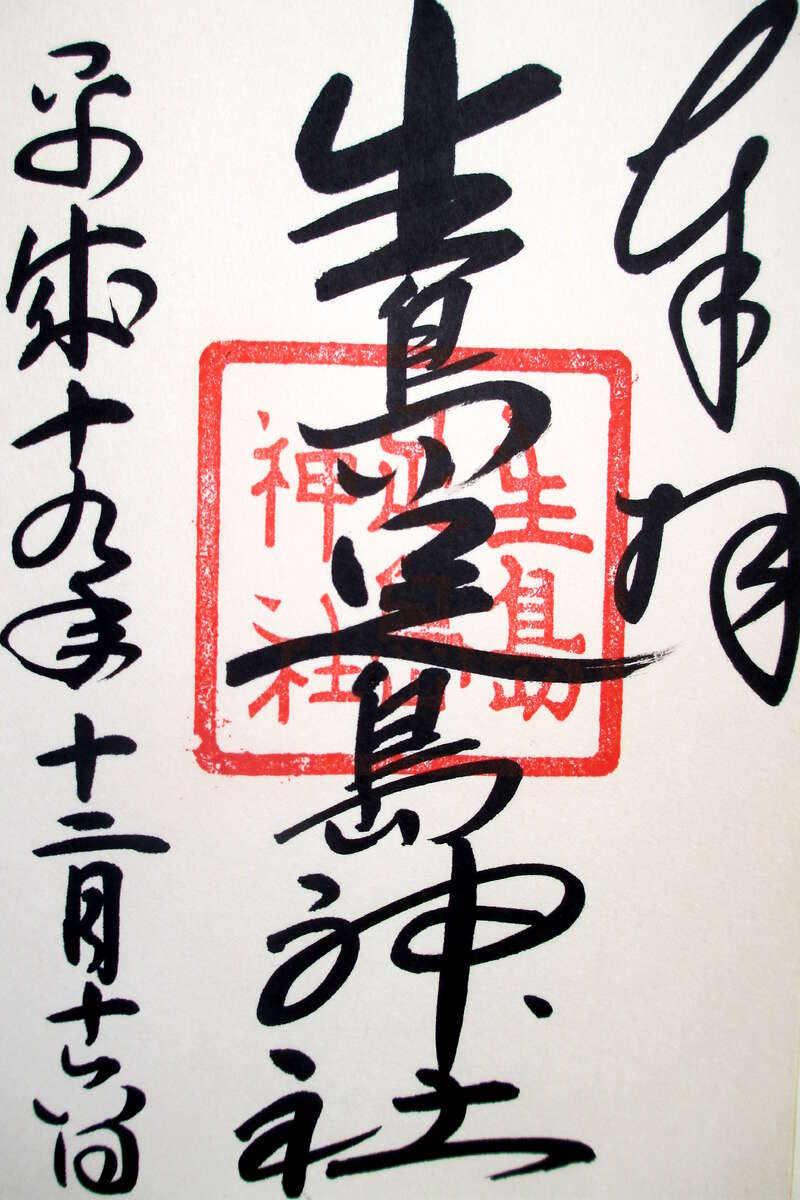 奉拝
生島足島神社
平成十九年十二月十六日
生島
足島
神社